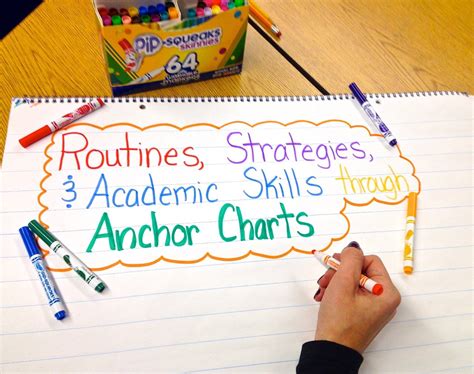 PiP-SQUEAKS
skinnies
64
Routines, Strategies,
& Academic Skills through
Anchor Charts